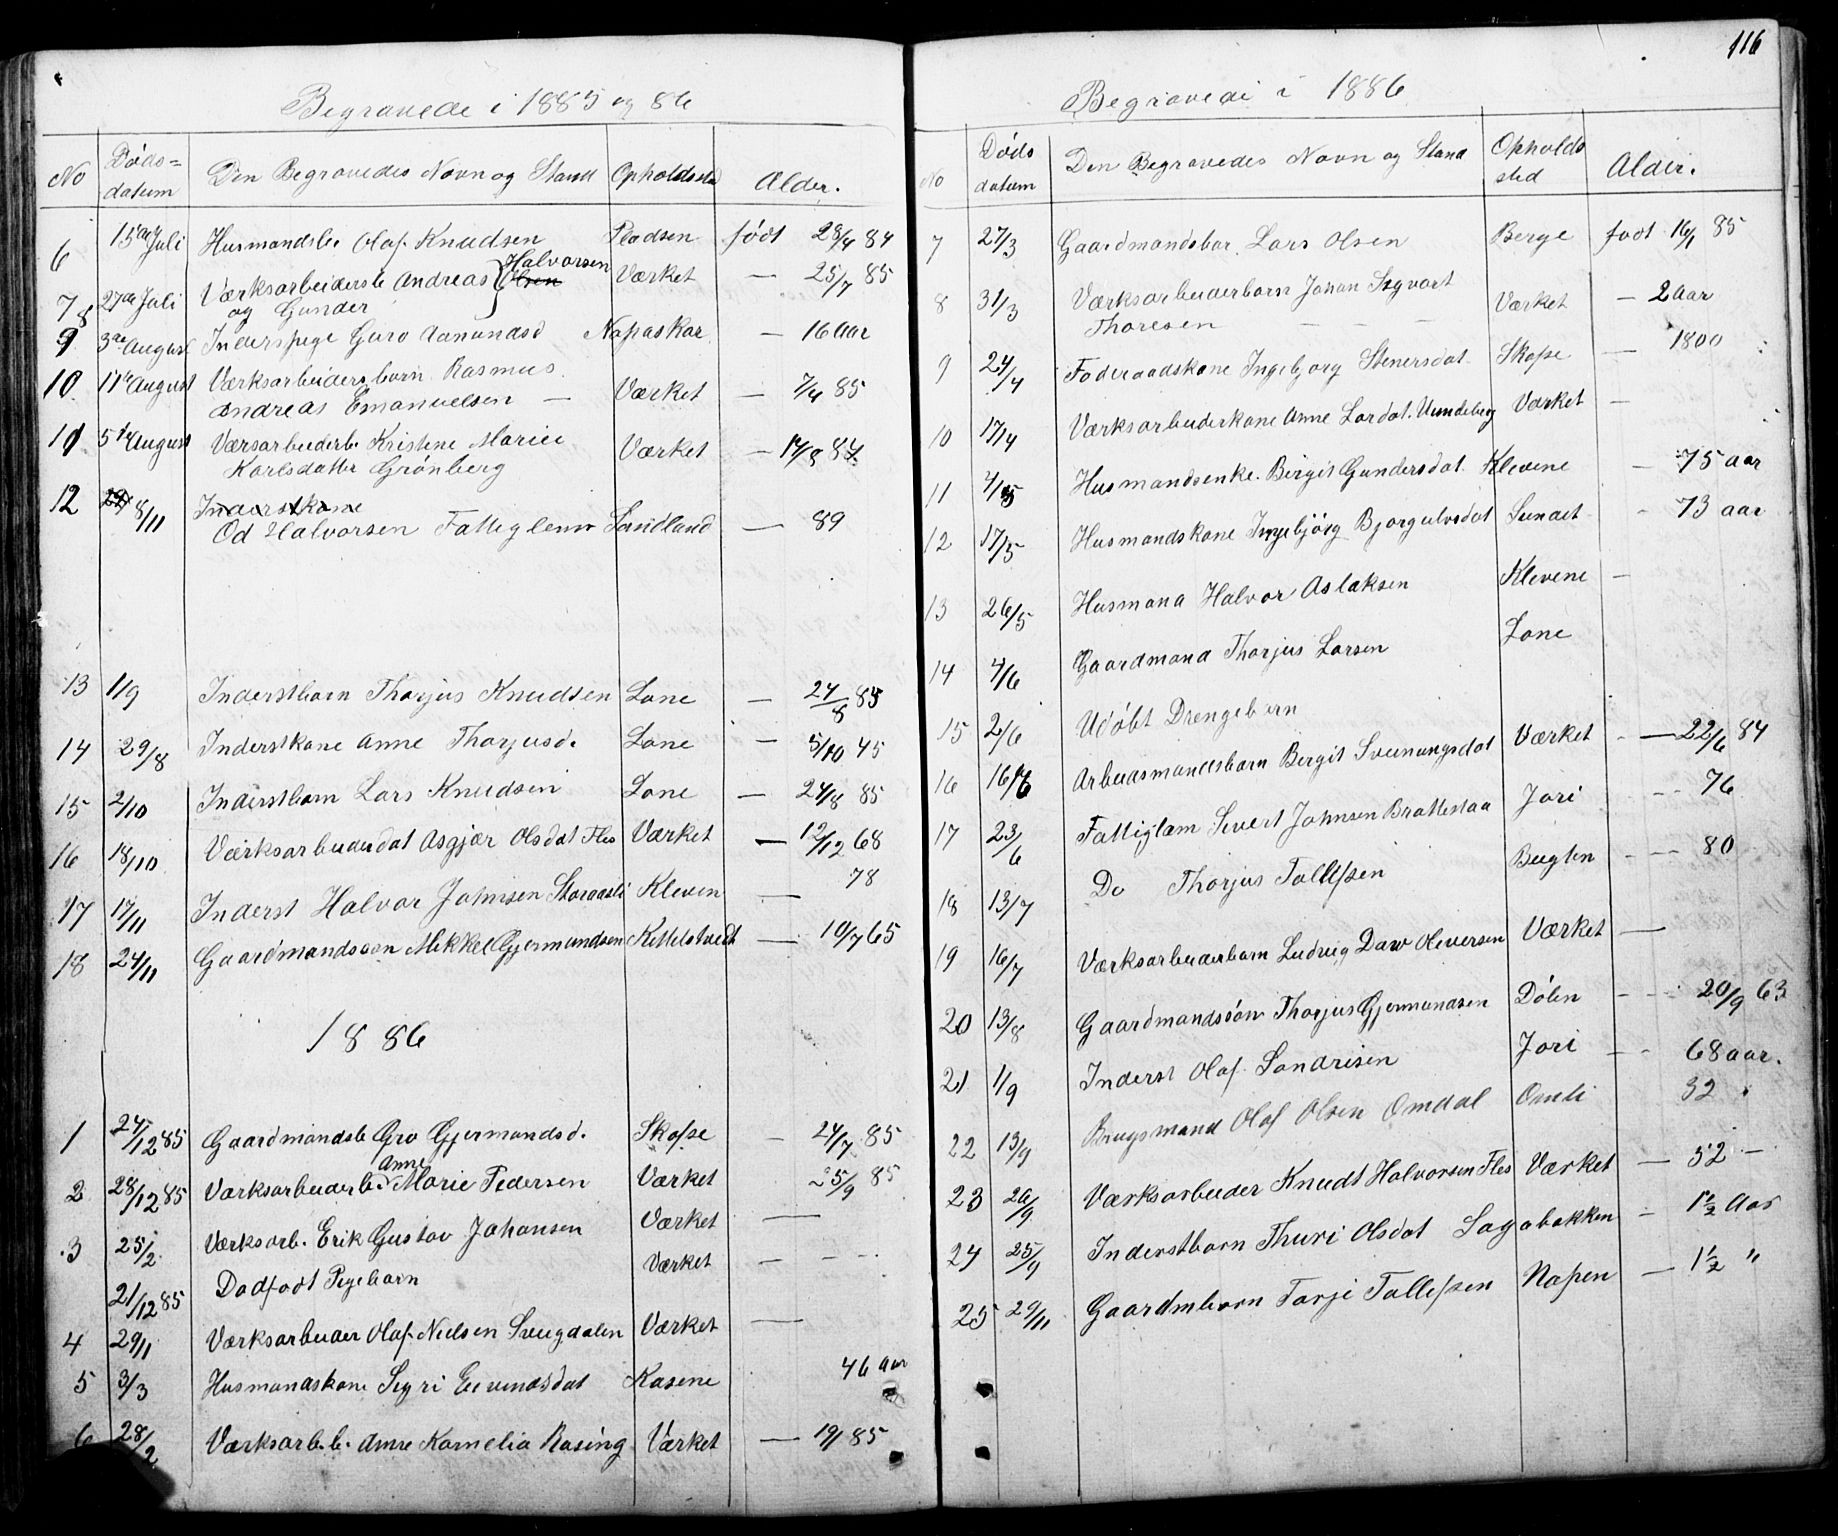 Begravede i 1885 og 86
No Døds= datum Den Begravedes Navn og Stand Opholdssted Alder.
6 15de Juli Husmandsb. Olaf Knudsen Pladsen født 23/4 84
7 27de Juli Værksarbeidersb. Andreas Halvorsen Værket — 25/7 85
8 og Gunder
9 3de August Inderspige Guro Aanundsd Napaskar — 16 Aar
10 11te August Værksarbeidersborn Rasmus
Andreas Emanuelsen — Værket — 7/4 85
11 5te August Værsarbeiderb. Kristene Mariee
Karlsdatter Grønberg Værket — 14/8 84
12 8/11 Inderstkone
Od Halvorsen Fattiglem Sandland — 89
13 1/9 Inderstbarn Thorjus Knudsen Lone — 24/8 85
14 29/8 Inderstkone Anne Thorjusd. Lone — 5/10 45
15 2/10 Inderstbarn Lars Knudsen Lone — 24/8 85
16 18/10 Værksarbeiderdat Asgjær Olsdat Fles Værket — 12/12 68
17 17/11 Inderst Halvor Johnsen Storaasli Kleven — 78
18 24/11 Gaardmandsson Mikkel Gjermundsen Kittelstvedt — 10/7 65
1886
1 27/12 85 Gaardmandsb Gro Gjermundsd. Skofse — 24/7 85
2 28/12 85 Værksarbeiderb. Anne Marie Pedersen Værket 25/9 85
3 25/2 Værksarb. Erik Gustav Johansen Værket —
21/12 85 Dødfødt Pigebarn Værket — — —
4 29/1 Værksarbeider Olaf Nielsen Svugdalen Værket —
5 3/3 Husmandskone Sigri Eivindsdat Kasene 46 Aar
6 28/2 Værksarb.b. Anne Kornelia Rasing Værket — 19/1 85
116
Begravede i 1886
No Døds datum Den Begravedes Navn og Stand Opholds sted Alder.
7 27/3 Gaardmandsbar Lars Olsen Berge født 16/1 85
8 31/3 Værksarbeiderbarn Johan Sigvart
Thoresen — — — Værket — 2 Aar
9 24/4 Føderaadskone Ingebjorg Stenersdat. Skofse — 1800
10 17/4 Værksarbeiderkone Anne Larsdat. Uundeberg Værket —
11 4/5 Husmandsenke. Birgit Gundersdat. Klevene — 75 aar
12 17/5 Husmandskone Ingebjörg Bjorgulvsdat Sundet - 73 aar
13 26/5 Husmand Halvor Aslaksen Klevene —
14 4/6 Gaardmand Thorjus Larsen Lone
15 2/6 Udöbt Drengebørn
16 16/6 Arbeidsmandsbarn Bergit Sveinungsdat Værket — 22/6 84
17 23/6 Fattiglæm Sivert Johnsen Brattestaa Jori — 76
18 13/7 Do Thorjus Tallefsen Bugten — 80
19 16/7 Værksarbeiderbarn Ludvig Daw Oliversen Værket —
20 13/8 Gaardmandssön Thorjus Gjermundsen Dölen — 20/9 63
21 1/9 Inderst Olaf Sondrisen Jori — 68 aar.
22 13/9 Brugsmand Olaf Olsen Omdal Omli 32
23 20/9 Værksarbeider Knudt Halvorsen Fles Værket — 52 —
24 25/9 Inderstbarn Thuri Olsdat Lagabakken — 1½ Aar
25 29/11 Gaardmborn Tarje Tallefsen Napen — 1½ "